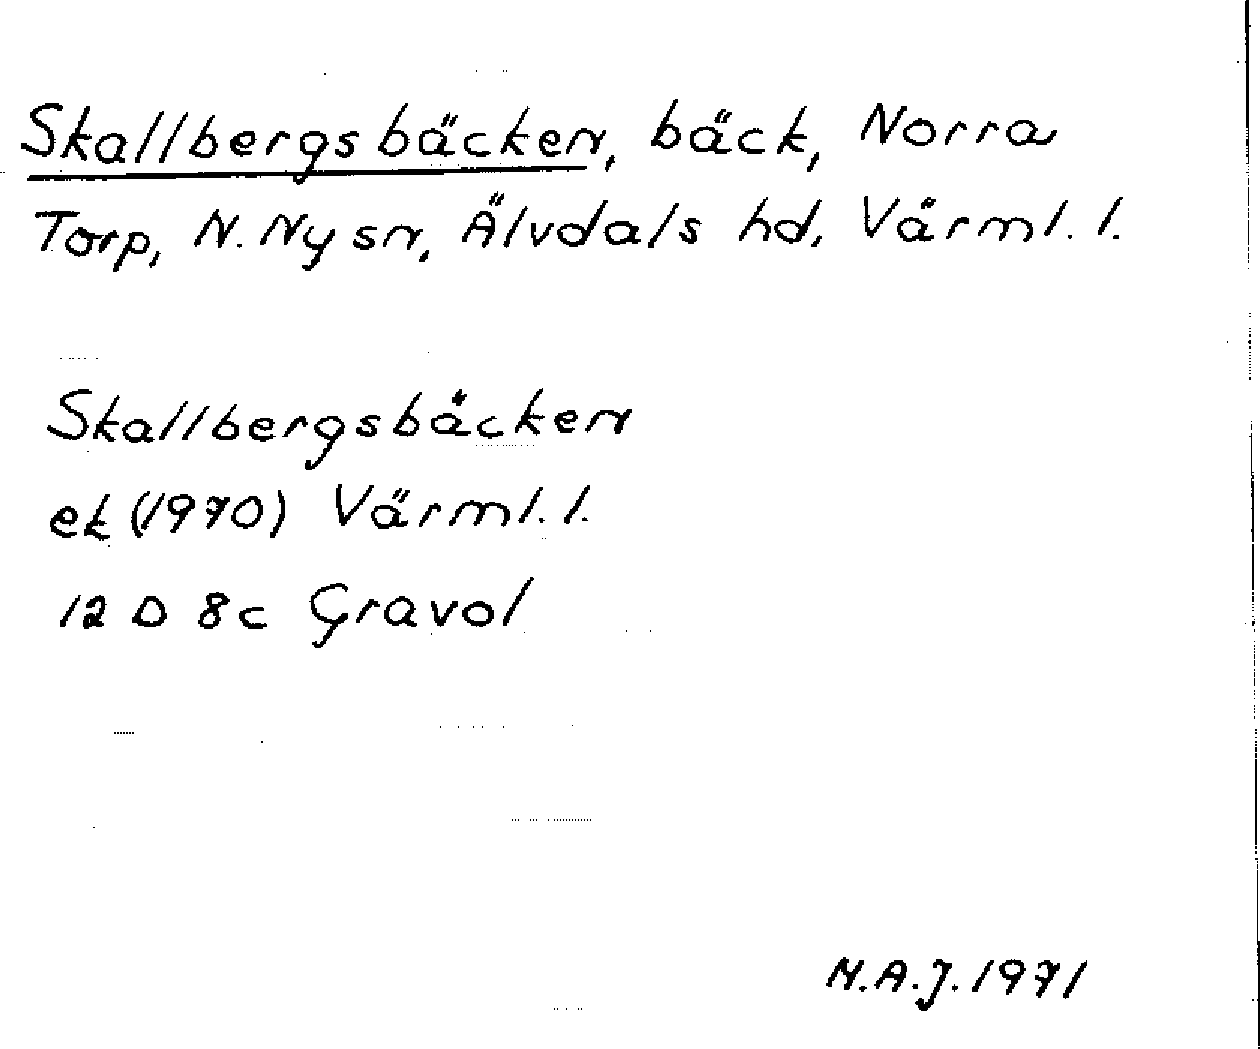 Skallbergsbäcken, bäck, Norra
Torp, N. Ny sn, Älvdals hd, Värml. l.
Skallbergsbäcken
ek (1970) Värml. l.
12 D 8c Gravol
N.A.J. 1971